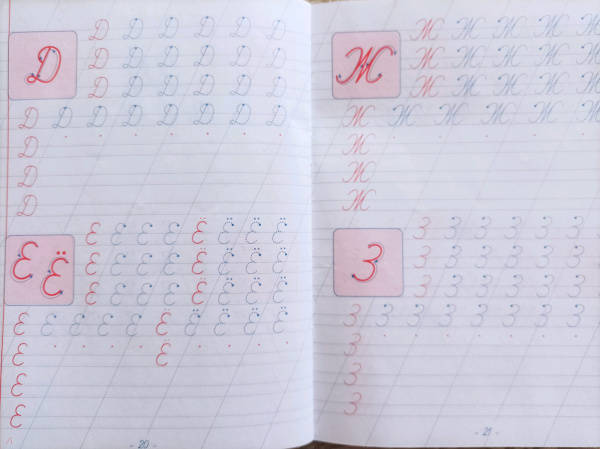 Д
Д Д Д Д Д Д
Д Д Д Д Д Д
Д Д Д Д Д Д
Д Д Д Д Д Д Д Д
Д
Д
Д
Е Ё
Е Е Е Е Ё Ё Ё Ё
Е Е Е Е Ё Ё Ё Ё
Е Е Е Е Ё Ё Ё Ё
Е Е Е Е Е Ё Ё Ё Ё Ё
Е Ё
Е
Е
- 20 -
Ж
Ж Ж Ж Ж Ж
Ж Ж Ж Ж Ж
Ж Ж Ж Ж Ж
Ж Ж Ж Ж Ж Ж
Ж
Ж
Ж
З
З З З З З З
З З З З З З
З З З З З З
З З З З З З З З
З
З
З
- 21 -